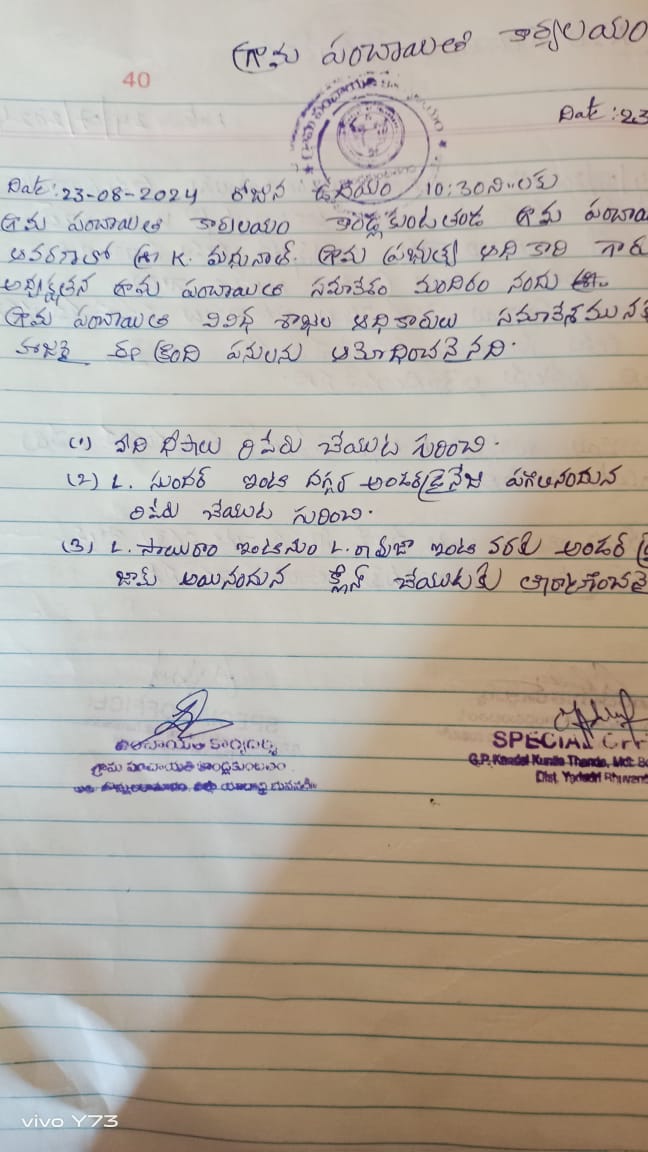 గ్రామ పంచాయితి కార్యాలయం
40
Date: 23
Date: 23-08-2024 రోజున ఉదయం 10:30ని..లకు
గ్రామ పంచాయితి కార్యాలయం కాండ్లకుంట తండ గ్రామ పంచాయి
ఆవరణలో శ్రీ K. మధులాల్. గ్రామ ప్రభుత్వ అధికారి గారు
అధ్యక్షతన గ్రామ పంచాయితి సమావేశం మందిరం నందు
గ్రామ పంచాయితి వివిధ శాఖల అధికారులు సమావేశమునకు
హాజరై ఈ క్రింది పనులను ఆమోదించనైనది.
(1) వీది దీపాలు రిపేరు చేయుట గురించి.
(2) L. సుందర్ ఇంటి దగ్గర అండర్‌డ్రైనేజి పగిలినందున
రిపేరు చేయుట గురించి.
(3) L. సాయిరాం ఇంటినుం L. రామజా ఇంటి వరకు అండర్
జామ్ అయినందున క్లీన్ చేయుటకు
పంచాయతి కార్యదర్శి
గ్రామ పంచాయతి కాండ్లకుంటతండ
SPECIAL OFF
G.P. Kandal Kunta Thanda, Mdl: B
Dist. Yadadri Bhuvan
vivo Y73